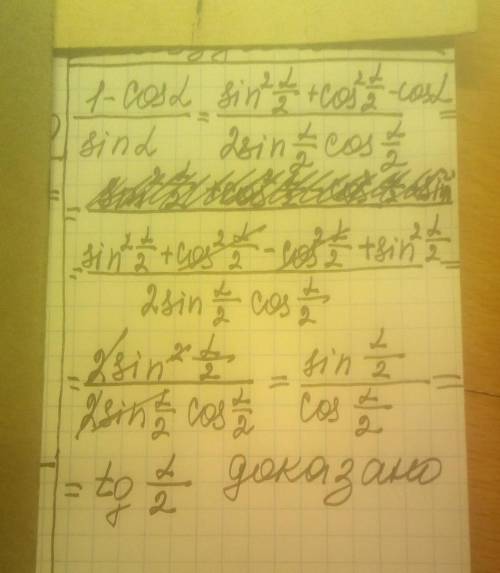 (1 - cos α)/(sin α) = (sin² α/2 + cos² α/2 - cos α)/(2 sin α/2 cos α/2) =
= (sin² α/2 + cos² α/2 - cos² α/2 + sin² α/2)/(2 sin α/2 cos α/2) =
= (2 sin² α/2)/(2 sin α/2 cos α/2) = (sin α/2)/(cos α/2) =
= tg α/2 доказано